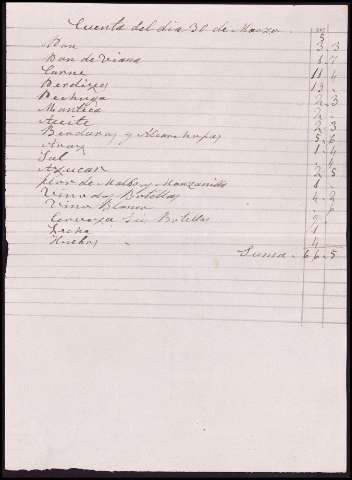 Cuenta del dia 30 de Marzo
Pan 3 3
Pan de Viana 1 7
Carne 11 4
Perdizes 13
Pechuga 2 3
Manteca 2
Aceite 2 3
Berduras y Alcanchofas 5 6
Aroz 1 4
Sal
Azucar 2 5
flor de Malba y Manzanilla 1
Vino dos Botellas 4 2
Vino Blanco
Cerveza Seis Botellas
Leche 1
Huebos 4
Suma 66 5